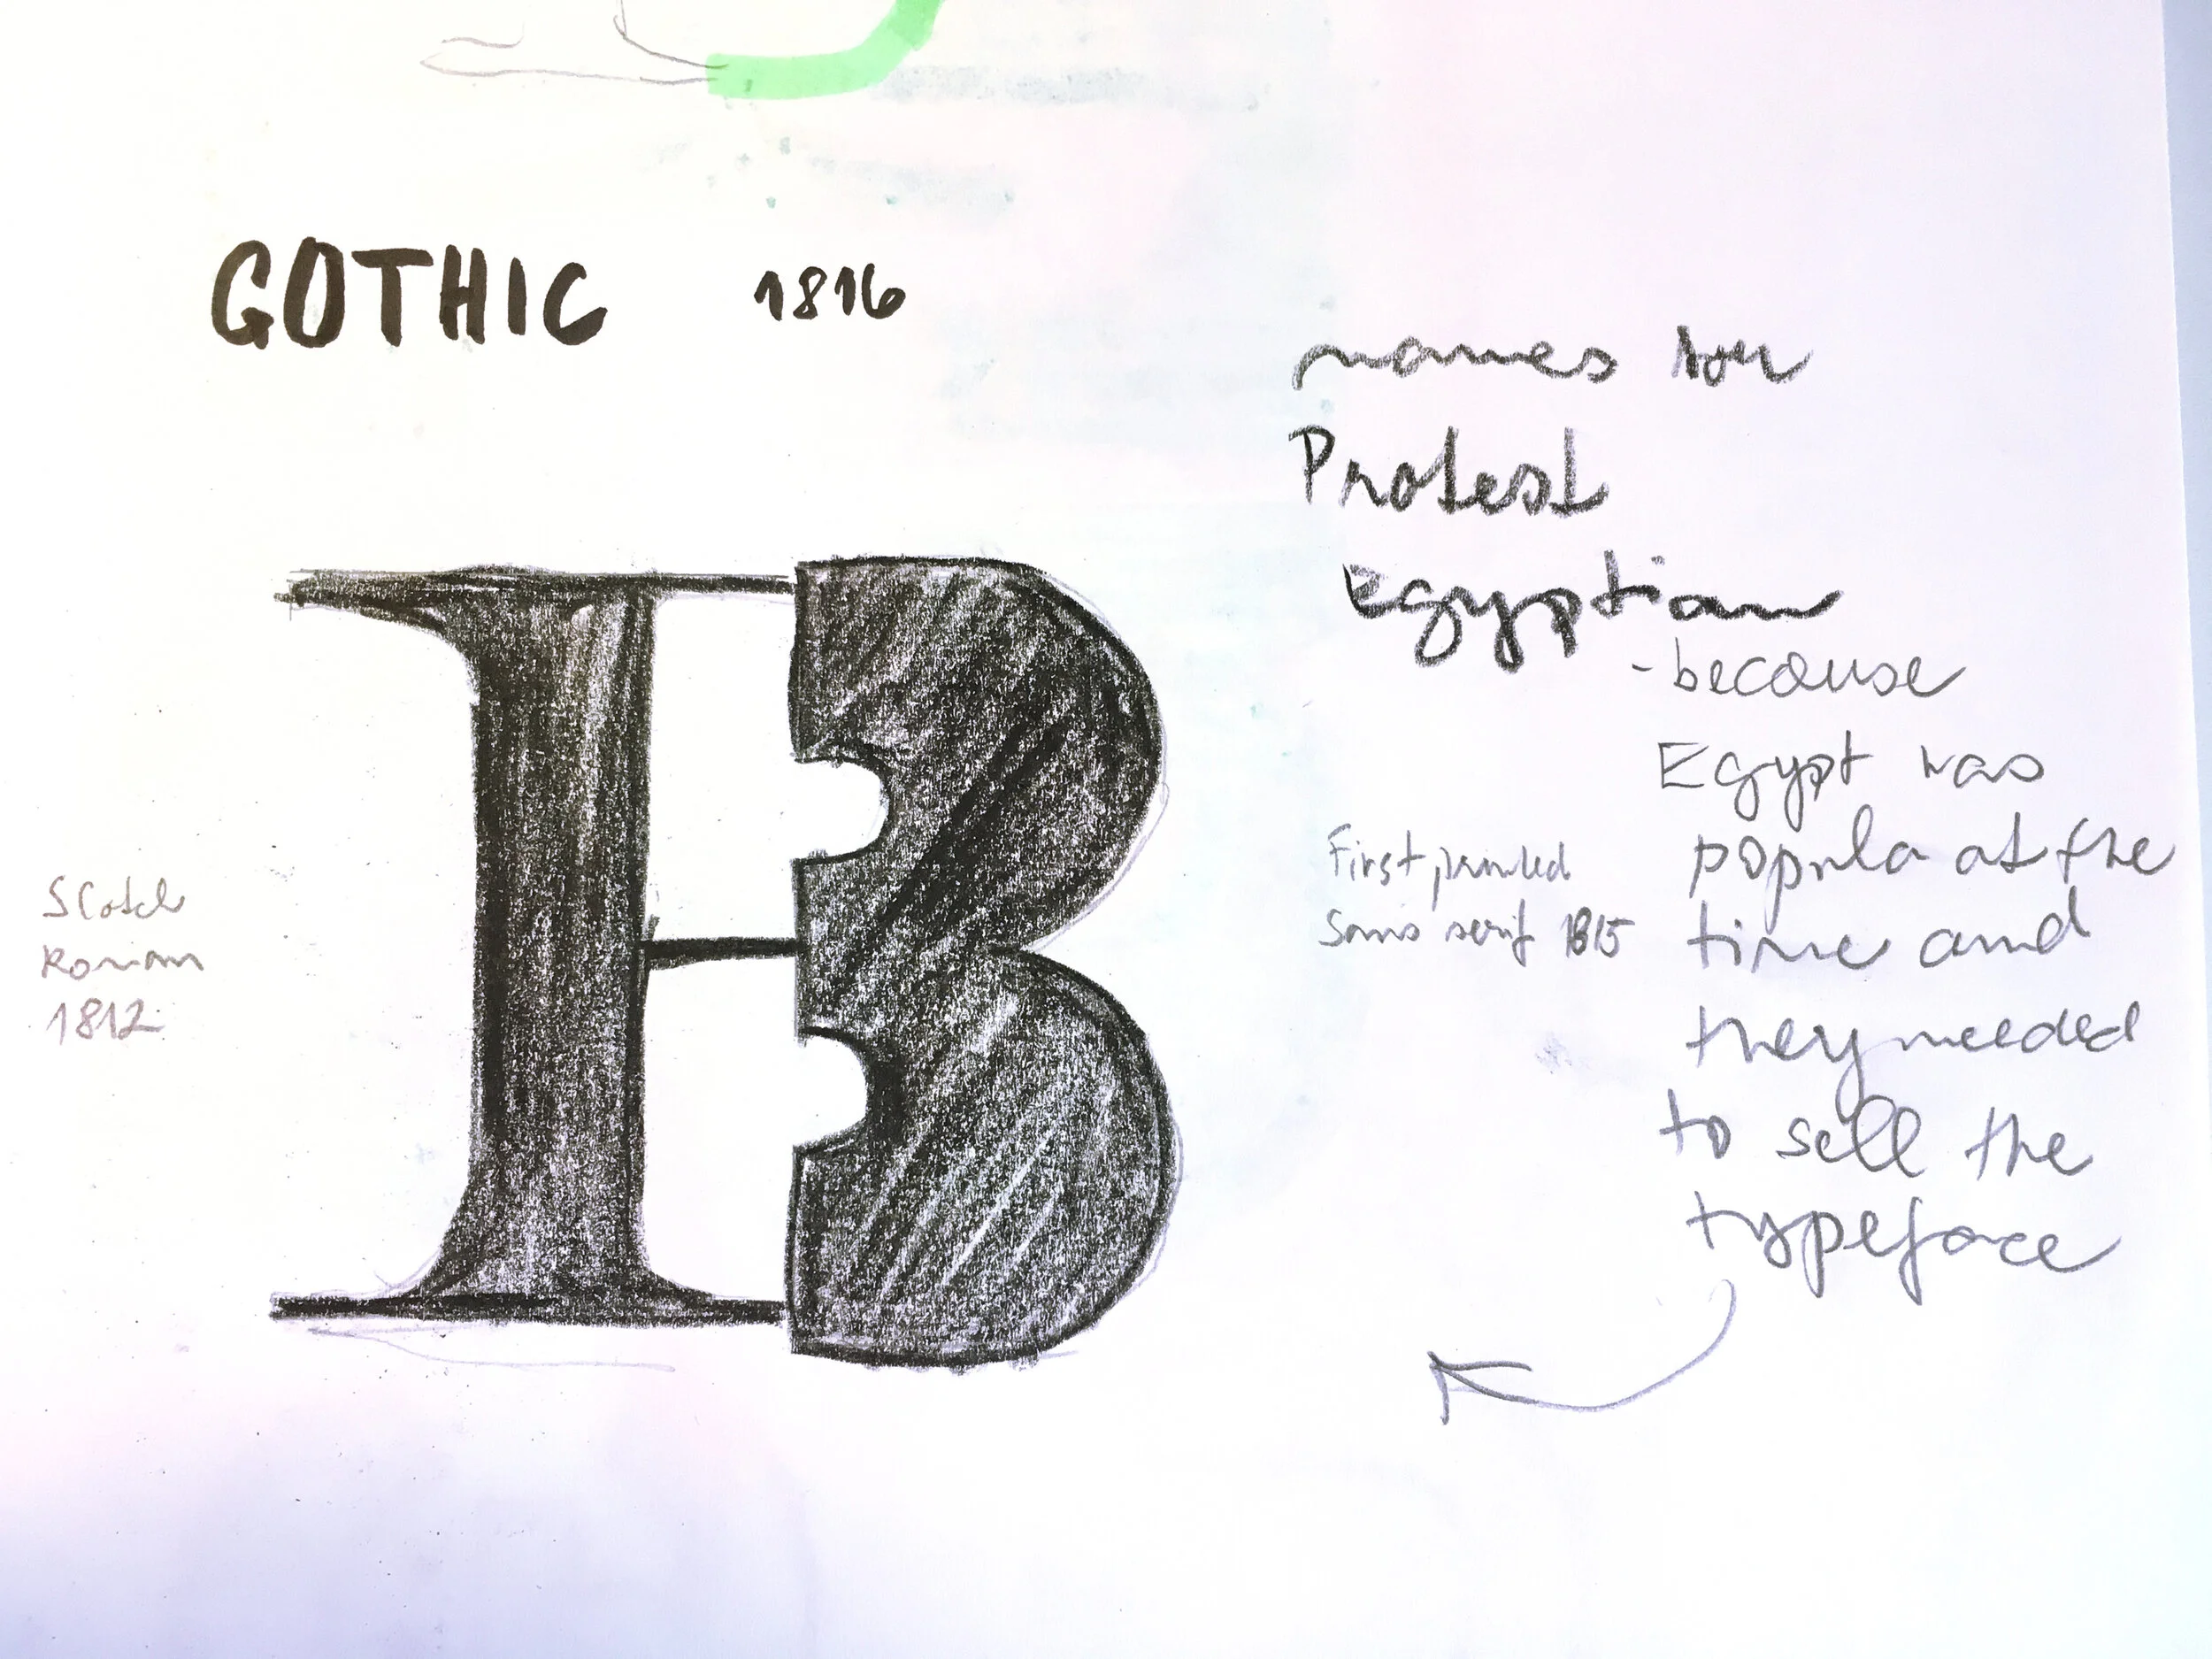 GOTHIC 1816
names for
Protest
Egyptian
- because
Egypt was
popula at the
time and
they needed
to sell the
typeface
First printed
Sans serif 1815
Scotch
Roman
1812
B